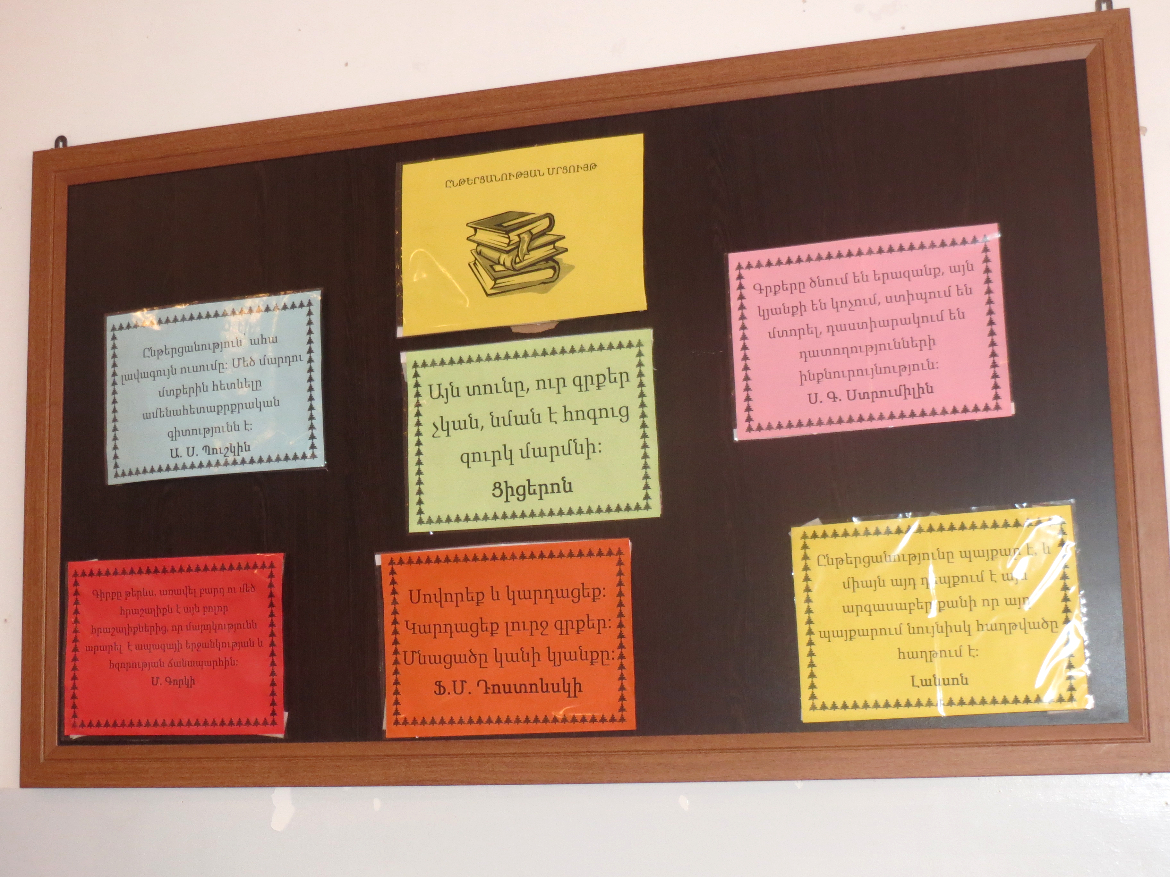 ԸՆԹԵՐՑԱՆՈՒԹՅԱՆ ՄՐՑՈՒՅԹ
Ընթերցանություն՝ ահա
լավագույն ուսումը: Մեծ մարդու
մտքերին հետևելը
ամենահետաքրքրական
գիտությունն է:
Ա. Ս. Պուշկին
Այն տունը, ուր գրքեր
չկան, նման է հոգուց
զուրկ մարմնի:
Ցիցերոն
Գրքերը ծնում են երազանք, այն
կյանքի են կոչում, ստիպում են
մտորել, դաստիարակում են
դատողությունների
ինքնուրույնություն:
Ս. Գ. Ստրումիլին
Գիրքը թերևս, առավել բարդ ու մեծ
հրաշալիքն է այն բոլոր
հրաշալիքներից, որ մարդկությունն
արարել է ապագայի երջանկության և
հզորության ճանապարհին:
Մ. Գորկի
Սովորեք և կարդացեք:
Կարդացեք լուրջ գրքեր:
Մնացածը կանի կյանքը:
Ֆ.Մ. Դոստոևսկի
Ընթերցանությունը պայքար է, և
միայն այդ դեպքում է այն
արգասաբեր, քանի որ այդ
պայքարում նույնիսկ հաղթվածը
հաղթում է:
Լանսոն